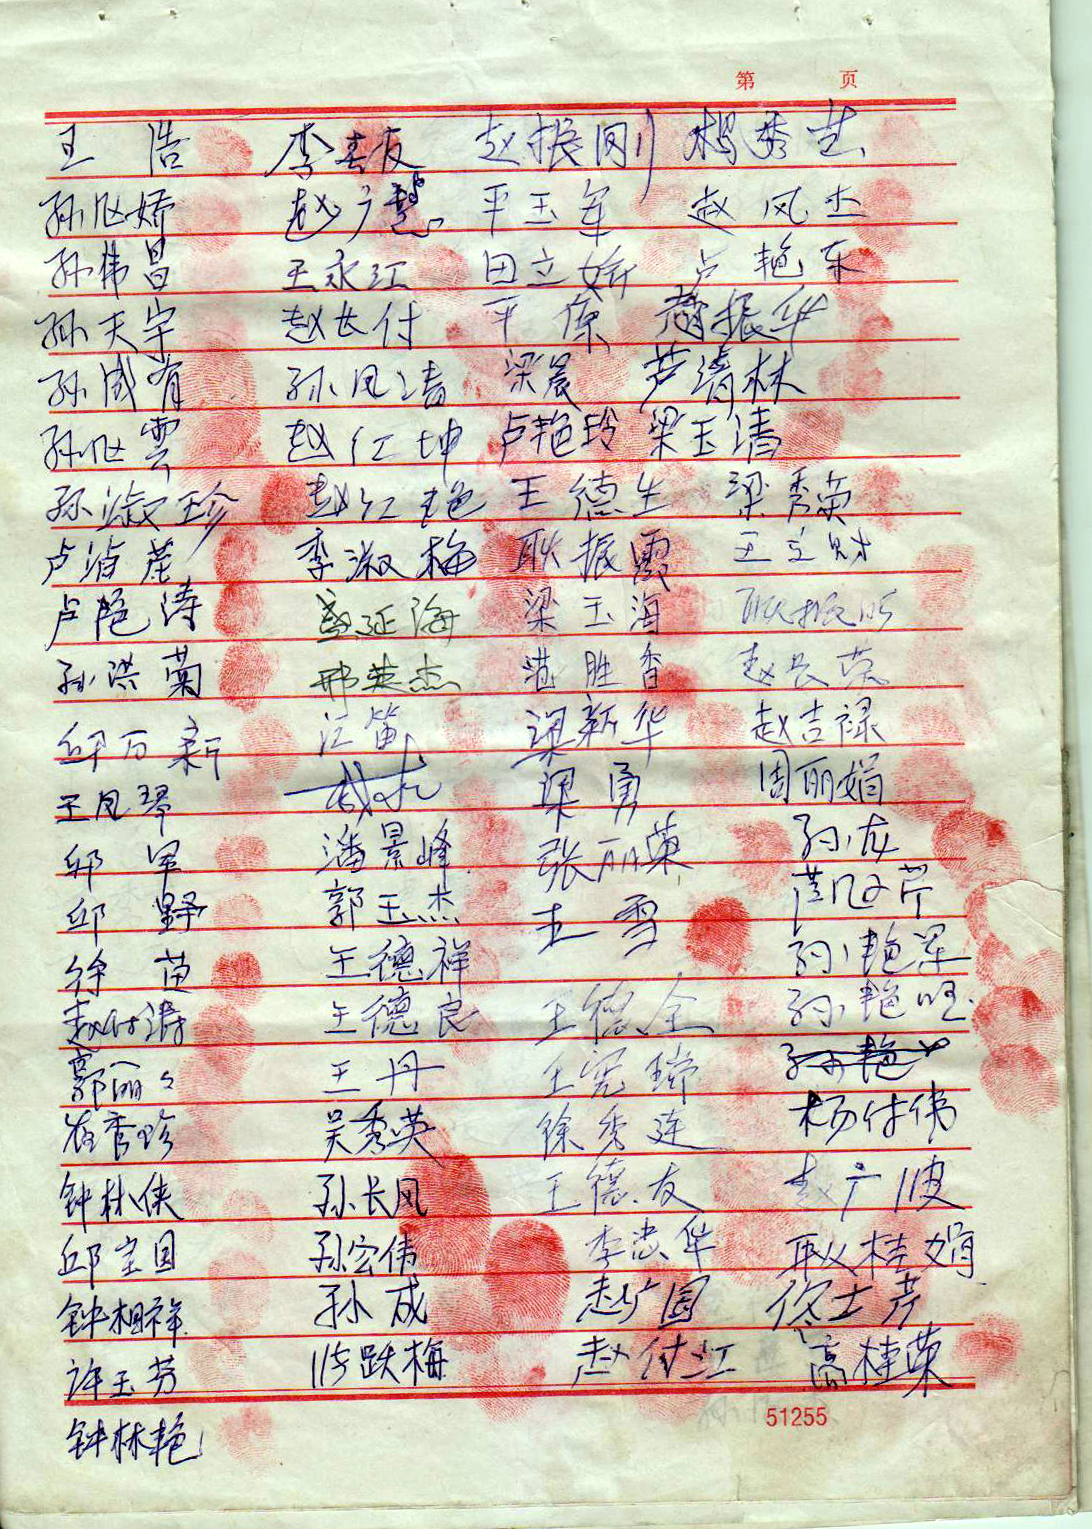 第 页
王浩 李春友 赵振刚 杨秀艺
孙凤娇 赵广慧 平玉军 赵凤杰
孙伟昌 王永江 田立娇 卢艳东
孙天宇 赵长付 平原 赵振华
孙成有 孙凤清 梁晨 芦清林
孙凤云 赵红坤 卢艳玲 梁玉清
孙淑珍 赵红艳 王德生 梁秀荣
李淑梅 耿振霞 王立财
卢艳涛 延海 梁玉海
孙洪菊 邢英杰 胜香 赵长荣
邱万新 汪笛 梁新华 赵吉禄
王凤琴 梁勇 周丽娟
邱军 潘景峰 张丽 孙友
邱野 郭玉杰 王雪
徐苗 王德祥 孙艳军
赵付涛 王德良 王德全 孙艳旺
郭丽々 王丹 王宪瑞
香珍 吴秀英 徐秀莲 杨付伟
钟林侠 孙长风 王德友 赵广波
邱宝国 孙宏伟 李忠华 耿桂娟
钟相祥 孙成 赵广国 佟士芳
许玉芳 跃梅 赵付江 高桂荣
51255
钟林艳